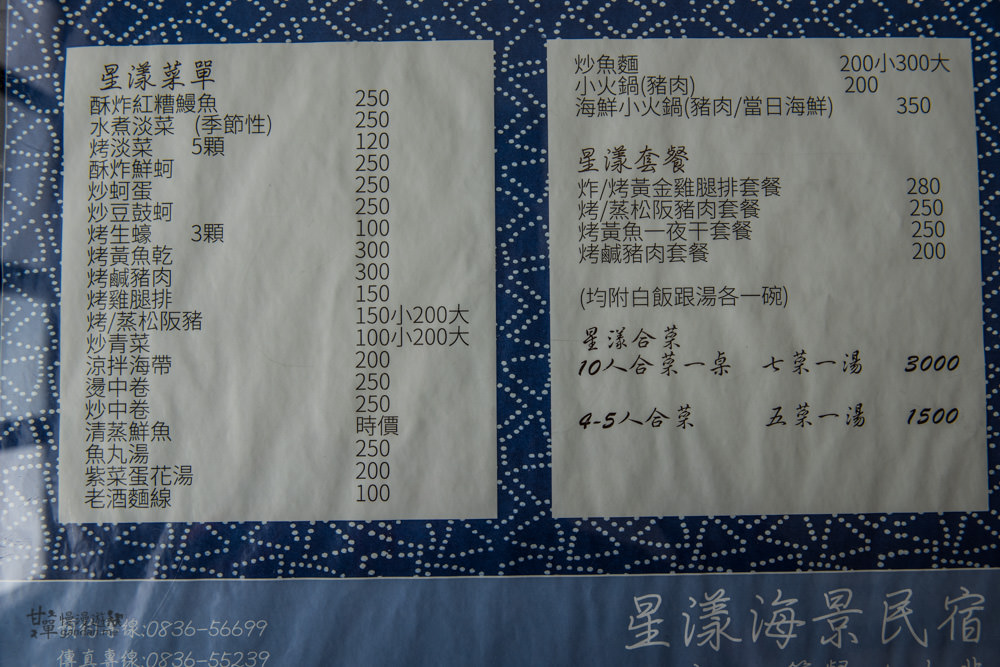 星漾菜單
酥炸紅糟鰻魚 250
水煮淡菜 (季節性) 250
烤淡菜 5顆 120
酥炸鮮蚵 250
炒蚵蛋 250
炒豆鼓蚵 250
烤生蠔 3顆 100
烤黃魚乾 300
烤鹹豬肉 300
烤雞腿排 150
烤/蒸松阪豬 150小200大
炒青菜 100小200大
涼拌海帶 200
燙中卷 250
炒中卷 250
清蒸鮮魚 時價
魚丸湯 250
紫菜蛋花湯 200
老酒麵線 100
炒魚麵 200小300大
小火鍋(豬肉) 200
海鮮小火鍋(豬肉/當日海鮮) 350
星漾套餐
炸/烤黃金雞腿排套餐 280
烤/蒸松阪豬肉套餐 250
烤黃魚一夜干套餐 250
烤鹹豬肉套餐 200
(均附白飯跟湯各一碗)
星漾合菜
10人合菜一桌 七菜一湯 3000
4-5人合菜 五菜一湯 1500
星漾海景民宿
線:0836-56699
傳真專線:0836-55239